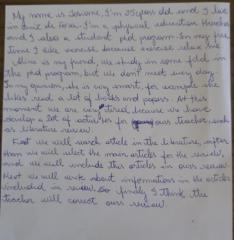 My name is Jovane, I'm 35 years old and I live
in Juiz de Fora. I'm a physical education theacher
and I also a student phd program. In my free
time I like exercise because exercise relax me.
Aline is my friend, we study in same field in
the phd program, but we don't meet every day.
In my opinion, she is very smart, for example she
likes read a lot of books and papers. At this
moment we are very tired, because we have
develop a lot of activities for our teacher, such
as literature review.
First we will search article in the literature, after
than we will select the main articles for the review,
and we will include this articles in our review.
Next we will write about informations in the articles
included in review. So finaly I think the
teacher will correct ours review.